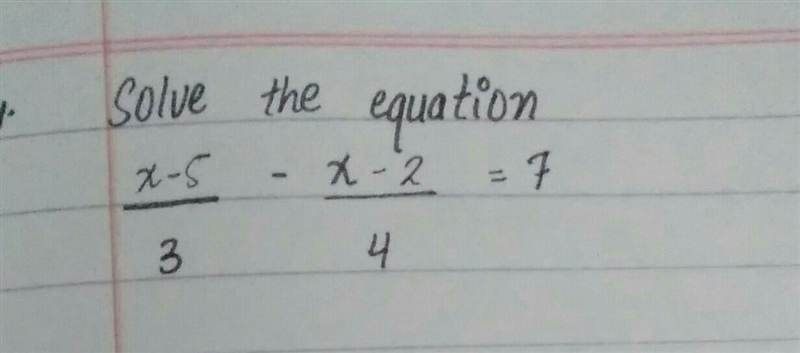 Solve the equation
x-5 - x-2 = 7
3 4